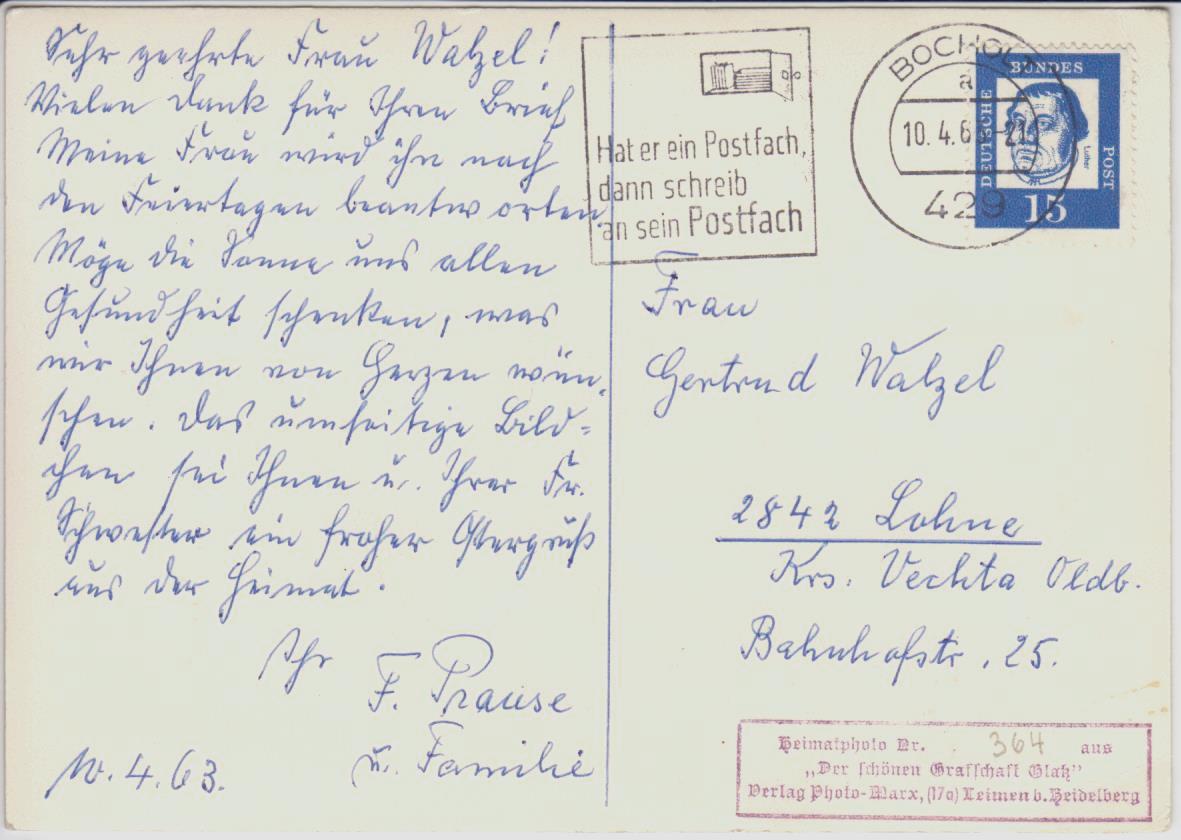 Sehr geehrte Frau Walzel!
Vielen Dank für Ihren Brief
Meine Frau wird ihn nach
den Feiertagen beantworten.
Möge die Sonne uns allen
Gesundheit schenken, was
wir Ihnen von Herzen wün-
schen. Das umseitige Bild=
chen sei Ihnen u. Ihrer Fr.
Schwester ein froher Ostergruß
aus der Heimat.
Ihr
F. Prause
u. Familie
10.4.63.
Hat er ein Postfach,
dann schreib
an sein Postfach
BOCHOLT
a
10.4.6 -21
429
DEUTSCHE
BUNDES
POST
Luther
15
Frau
Gertrud Walzel
2842 Lohne
Krs. Vechta Oldb.
Bahnhofstr. 25.
Heimatphoto Nr. 364 aus
„Der schönen Grafschaft Glatz"
Verlag Photo-Marx, (17a) Leimen b. Heidelberg